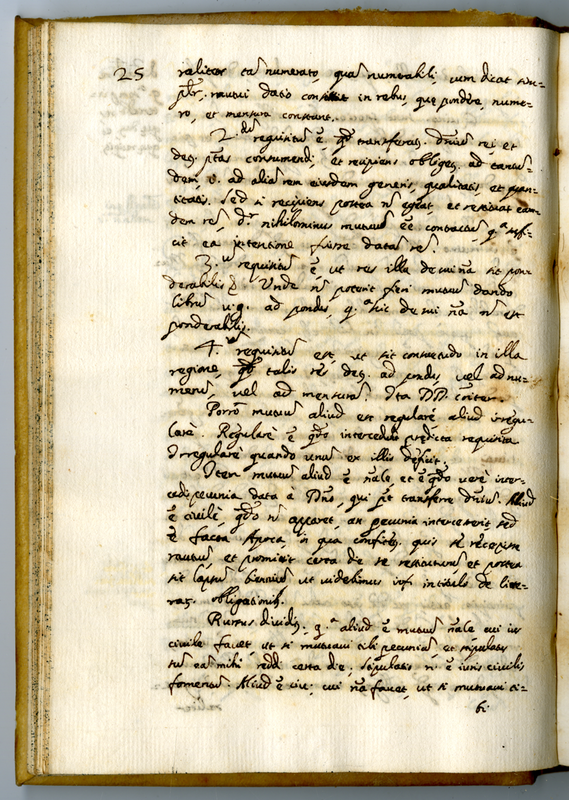 25
realiter tā numerato, quā numerabili cum dicat sim=
plr̄. mutui datio consistit in rebus, quę pondere, nume=
ro, et mensura constant.
2.dū requisitū ē, qd̄ transferat. Dniū rei et
consumendi, et recipiens obliget. ad tantū=
dem, ad aliā rem eiusdem generis, qualitatis et quan=
titatis. Sed si recipiens postea n̄ egeat, et restituat ean=
dem rē, dr̄ nihilominus mutuū ēē contractū, q.a suffi=
cit ea intentione fuisse datā rē
3.ū requisitū ē, ut res illa de sui nā sit pon=
derabilis Unde n̄ poterit fieri mutuū dando
librū v.g. ad pondus, q.a hic de sui nā n̄ est
ponderabilis.
4.ū requisitū est, ut sit consuetudo in illa
regione, qd̄ talis rēs det. ad pondus, vel ad nu=
merū, vel ad mensurā. Ita DD. cōiter.
Porrò mutuū aliud est regularè aliud irregu=
larè. Regularè ē qdō intercedūt predicta requisita
Irregularè quando unū ex illis deficit.
Item mutuū aliud ē nāle et ē qdō verè inter=
cedit pecunia data à Dnō, qui pōt transferre dniū. Aliud
ē civilè, qdō n̄ apparet, an pecunia intercesserit, sed
ē facta Apoca in qua confitet. quis sē recepisse
mutuū, et promisit certa die se restituturū et postea
sit lapsū bienniū ut videbimus infr. in titulo de litte=
rar. obligationib.
Rursus dividit. q.a aliud ē mutuū nāle cui ius
civile favet, ut si mutuavi tibi pecuniā, et stipulatus
sū eā mihi reddi certa die. Stipulatio n. ē iuris civilis
fomentū. Aliud ē civ: cui nā favet, ut si mutuavi ti=
bi